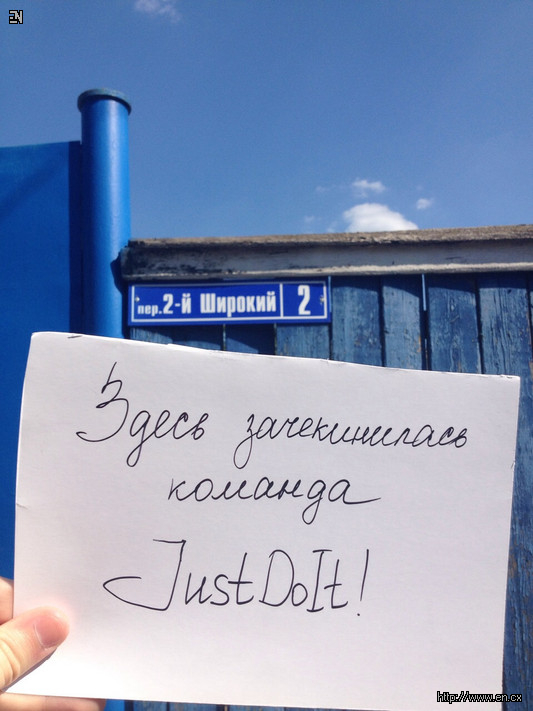 EN
пер. 2-й Широкий 2
Здесь зачекинилась
команда
JustDoIt!
http://www.en.cx